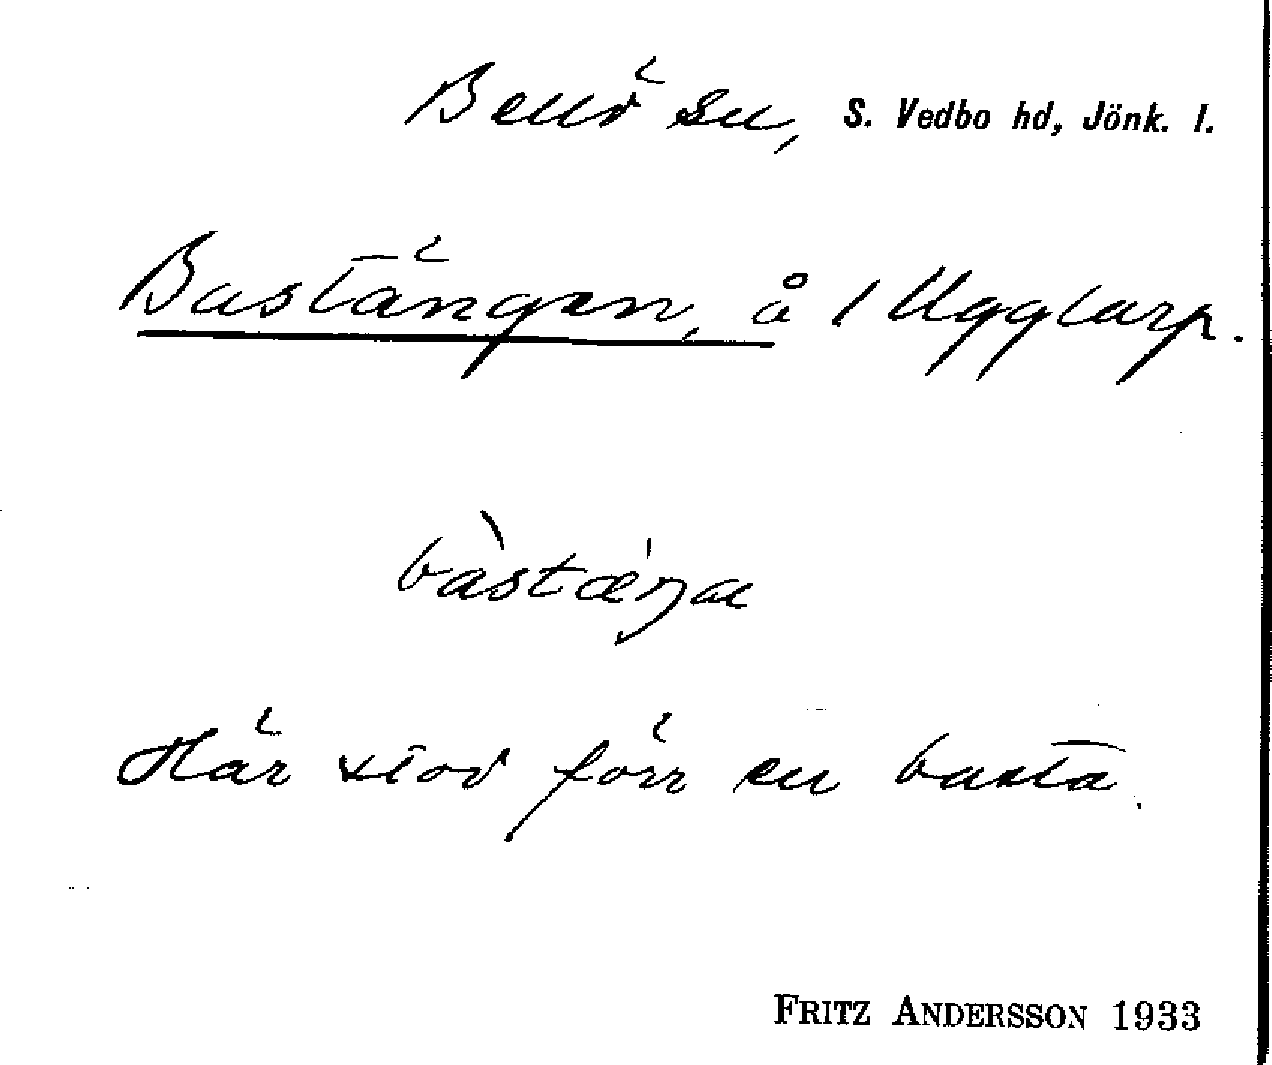 Bellö sn, S. Vedbo hd, Jönk. l.
Bastängen, å 1 Ugglarp.
bàstæ̀ŋa
Här stod förr en basta.
FRITZ ANDERSSON 1933